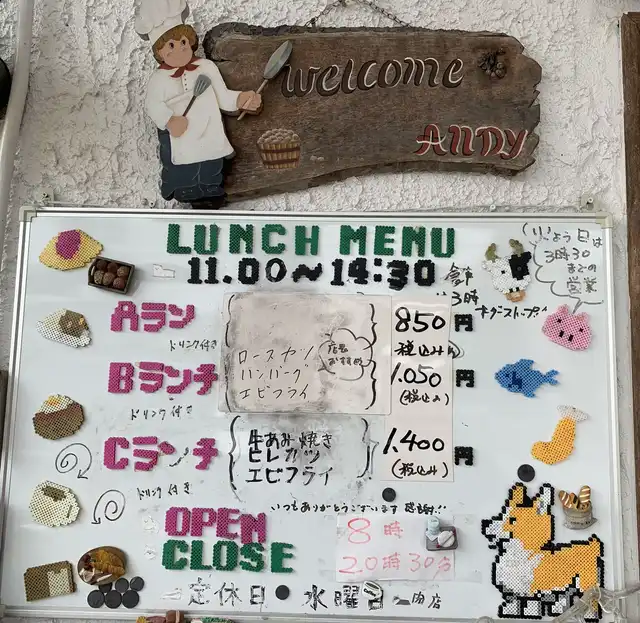 welcome
ANDY
LUNCH MENU
11.00~14:30
3時
Aラン
ドリンク付き
850円
(税込み)
Bランチ
ドリンク付き
ロースカツ
ハンバーグ
エビフライ
店長
おすすめ
1.050円
(税込み)
Cランチ
ドリンク付き
牛あみ焼き
ヒレカツ
エビフライ
1.400円
(税込み)
3時30
までの
営業
いつもありがとうございます 感謝!!
OPEN 8時
CLOSE 20時30分
定休日 水曜日
肉店